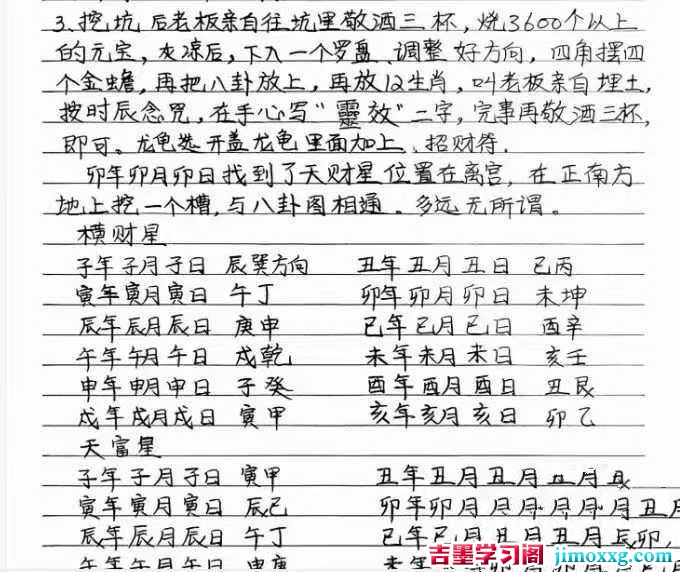 3.挖坑后老板亲自往坑里敬酒三杯,烧3600个以上
的元宝,灰凉后,下入一个罗盘、调整好方向,四角摆四
个金蟾,再把八卦放上,再放12生肖,叫老板亲自埋土,
按时辰念咒,在手心写“靈效”二字,完事再敬酒三杯,
即可。龙龟选开盖龙龟里面加上、招财符.
卯年卯月卯日找到了天财星位置在离宫,在正南方
地上挖一个槽,与八卦图相通。多远无所谓。
横财星
子年子月子日 辰巽方向 丑年丑月丑日 巳丙
寅年寅月寅日 午丁 卯年卯月卯日 未坤
辰年辰月辰日 庚申 巳年巳月巳日 酉辛
午年午月午日 戌乾 未年未月未日 亥壬
申年申月申日 子癸 酉年酉月酉日 丑艮
戌年戌月戌日 寅甲 亥年亥月亥日 卯乙
天富星
子年子月子日 寅甲 丑年丑月丑月
寅年寅月寅日 辰巳 卯年卯月
辰年辰月辰日 午丁 巳年巳月
午年午月午日 申庚 未年
吉墨学习阁 jimoxxg.com